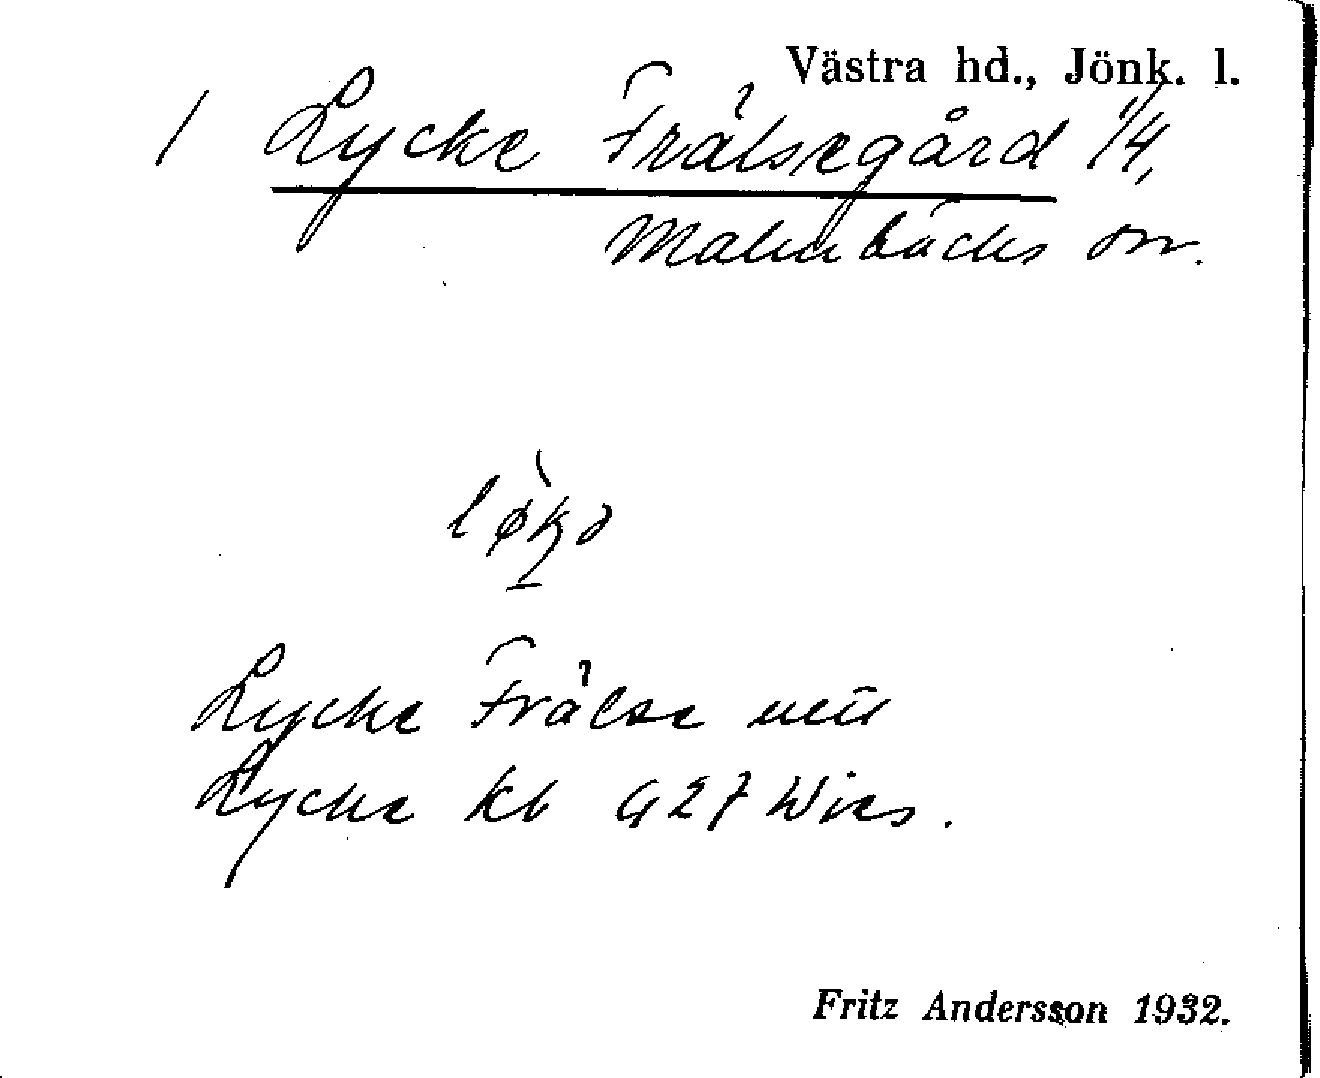 Västra hd., Jönk. l.
/ Lycke Frälsegård 1/4,
Malmbäcks sn.
Lycke Frälse
Lycke kb
Fritz Andersson 1932.